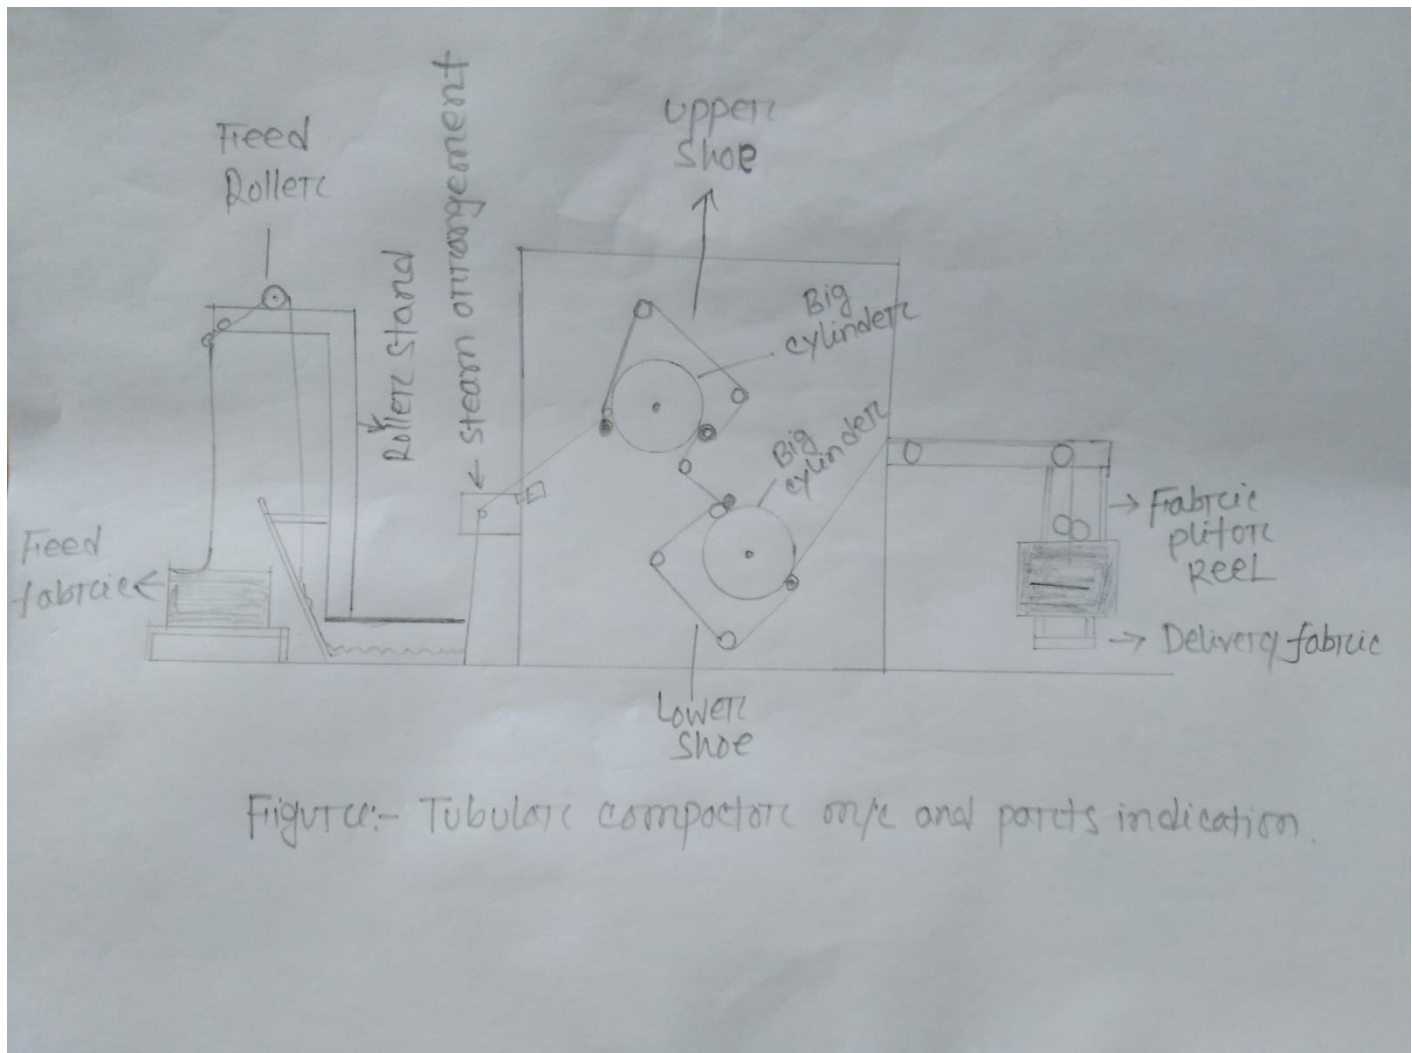 Feed
Roller
Roller Stand
Steam arrangement
Upper
Shoe
Big
cylinder
Big
cylinder
Feed
fabric
Fabric
plitor
Reel
Delivery fabric
Lower
Shoe
Figure:- Tubular compactor m/c and parts indication.